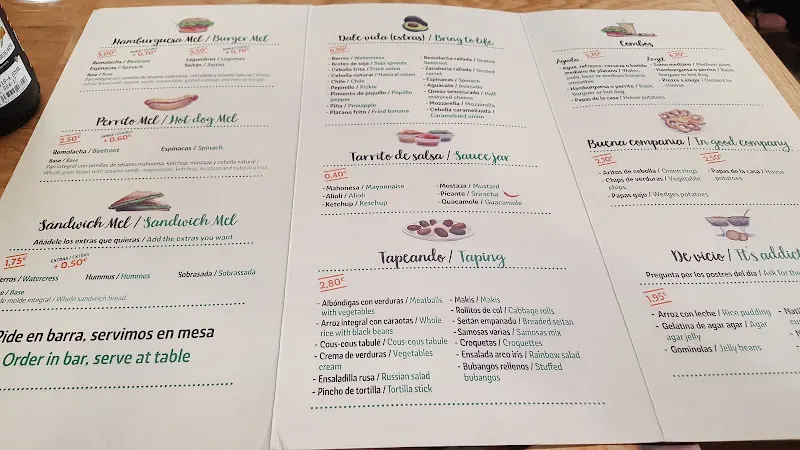 Hamburguesa Mel / Burger Mel
3,00€ + 0,70€ 3,50€ + 0,70€
Remolacha / Beetroot
Espinacas / Spinach
Legumbres / Legumes
Seitán / Seitan
Base / Base
Perrito Mel / Hot dog Mel
2,50€ + 0,60€
Remolacha / Beetroot
Espinacas / Spinach
Base / Base
Pan integral con semillas de sesamo, mahonesa, ketchup, mostaza y cebolla natural /
Whole grain bread with sesame seeds, mayonnaise, ketchup, mustard and natural onion.
Sándwich Mel / Sandwich Mel
Añadele los extras que quieras / Add the extras you want
1,75€ EXTRAS / EXTRAS + 0,50€
erros / Watercress
Hummus / Hummus
Sobrasada / Sobrassada
se / Base
de molde integral / Whole sandwich bread.
Pide en barra, servimos en mesa
Order in bar, serve at table
Dale vida (extras) / Bring to life
0,50€
- Berros / Watercress
- Brotes de soja / Soja sprouts
- Cebolla frita / Fried onion
- Cebolla natural / Natural onion
- Chile / Chile
- Pepinillo / Pickle
- Pimiento de piquillo / Piquillo
pepper
- Piña / Pineapple
- Plátano frito / Fried banana
- Remolacha rallada / Grated
beetroot
- Zanahoria rallada / Grated
carrot
- Espinacas / Spinach
- Aguacate / Avocado
- Queso semicurado / Half
matured cheese
- Mozzarella / Mozzarella
- Cebolla caramelizada /
Caramelized onion
Tarrito de salsa / Sauce jar
0,40€
- Mahonesa / Mayonnaise
- Alioli / Alioli
- Ketchup / Ketchup
- Mostaza / Mustard
- Picante / Sriracha
- Guacamole / Guacamole
Tapeando / Taping
2,80€
- Albóndigas con verduras / Meatballs
with vegetables
- Arroz integral con caraotas / Whole
rice with black beans
- Cous-cous tabulé / Cous-cous tabule
- Crema de verduras / Vegetables
cream
- Ensaladilla rusa / Russian salad
- Pincho de tortilla / Tortilla stick
- Makis / Makis
- Rollitos de col / Cabbage rolls
- Seitán empanado / Breaded seitan
- Samosas varias / Samosas mix
- Croquetas / Croquettes
- Ensalada arco iris / Rainbow salad
- Bubangos rellenos / Stuffed
bubangos
Combos
- Agua, refresco, cerveza o batido
mediano de plátano / Water,
soda, beer or medium banana
smoothie
- Hamburguesa o perrito / Basic
burger or hot dog
- Papas de la casa / House potatoes
Angel
- Zumo mediano / Medium juice
- Hamburguesa o perrito / Basic
burger or hot dog
- Postre a elegir / Dessert to
choose
Buena compañia / In good company
2,10€ 2,50€
- Aritos de cebolla / Onion rings
- Chips de verduras / Vegetable
chips
- Papas gajo / Wedges potatoes
- Papas de la casa / House
potatoes
De vicio / It's addict
Pregunta por los postres del día / Ask for the
1,95€
- Arroz con leche / Rice pudding
- Gelatina de agar agar / Agar
agar jelly
- Gominolas / Jelly beans